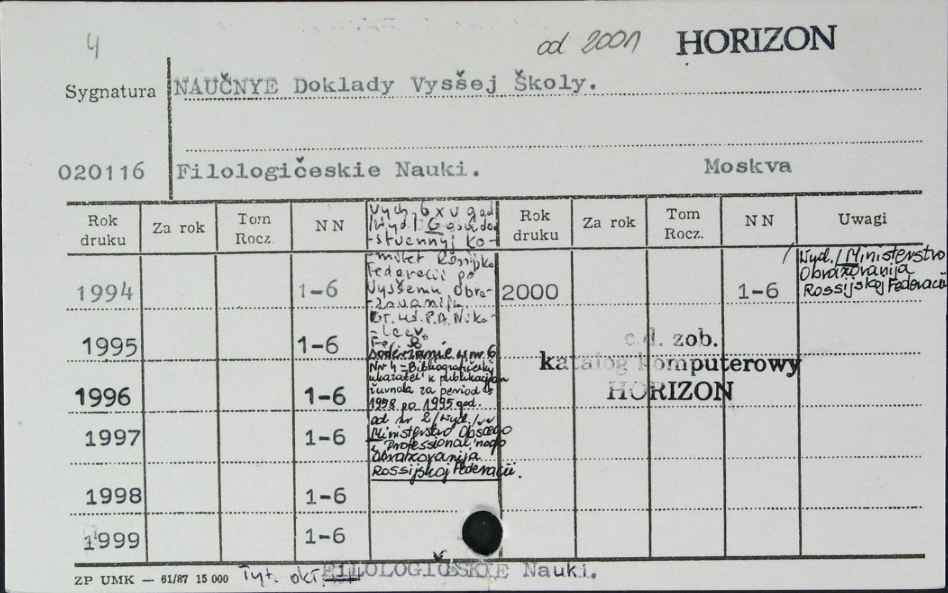 4
od 2001 HORIZON
Sygnatura NAUČNYE Doklady Vysšej Školy.
020116 Filologičeskie Nauki. Moskva
Rok druku Za rok Tom Rocz. NN Rok druku Za rok Tom Rocz. NN Uwagi
Vych. 6 x v god
/Wyd./
-stvennyj Ko-
-mitet Rossijskoj
Federacii po
Vysšemu Obra-
-zovaniju
1994 1-6 2000 1-6 Wyd./Ministerstvo
Obrazovanija
Rossijskoj Federacii
Nr 4 = Bibliografičeskij
ukazatel' k publikacijam
žurnala za period s
1958 po 1995 god.
od nr 2/wyd./
Ministerstvo Obščego
i Professional'nogo
Obrazovanija
Rossijskoj Federacii.
1995 1-6 c.d. zob.
katalog komputerowy
1996 1-6 HORIZON
1997 1-6
1998 1-6
1999 1-6
ZP UMK — 61/87 15 000 Tyt. okł. FILOLOGIČESKIE Nauki.